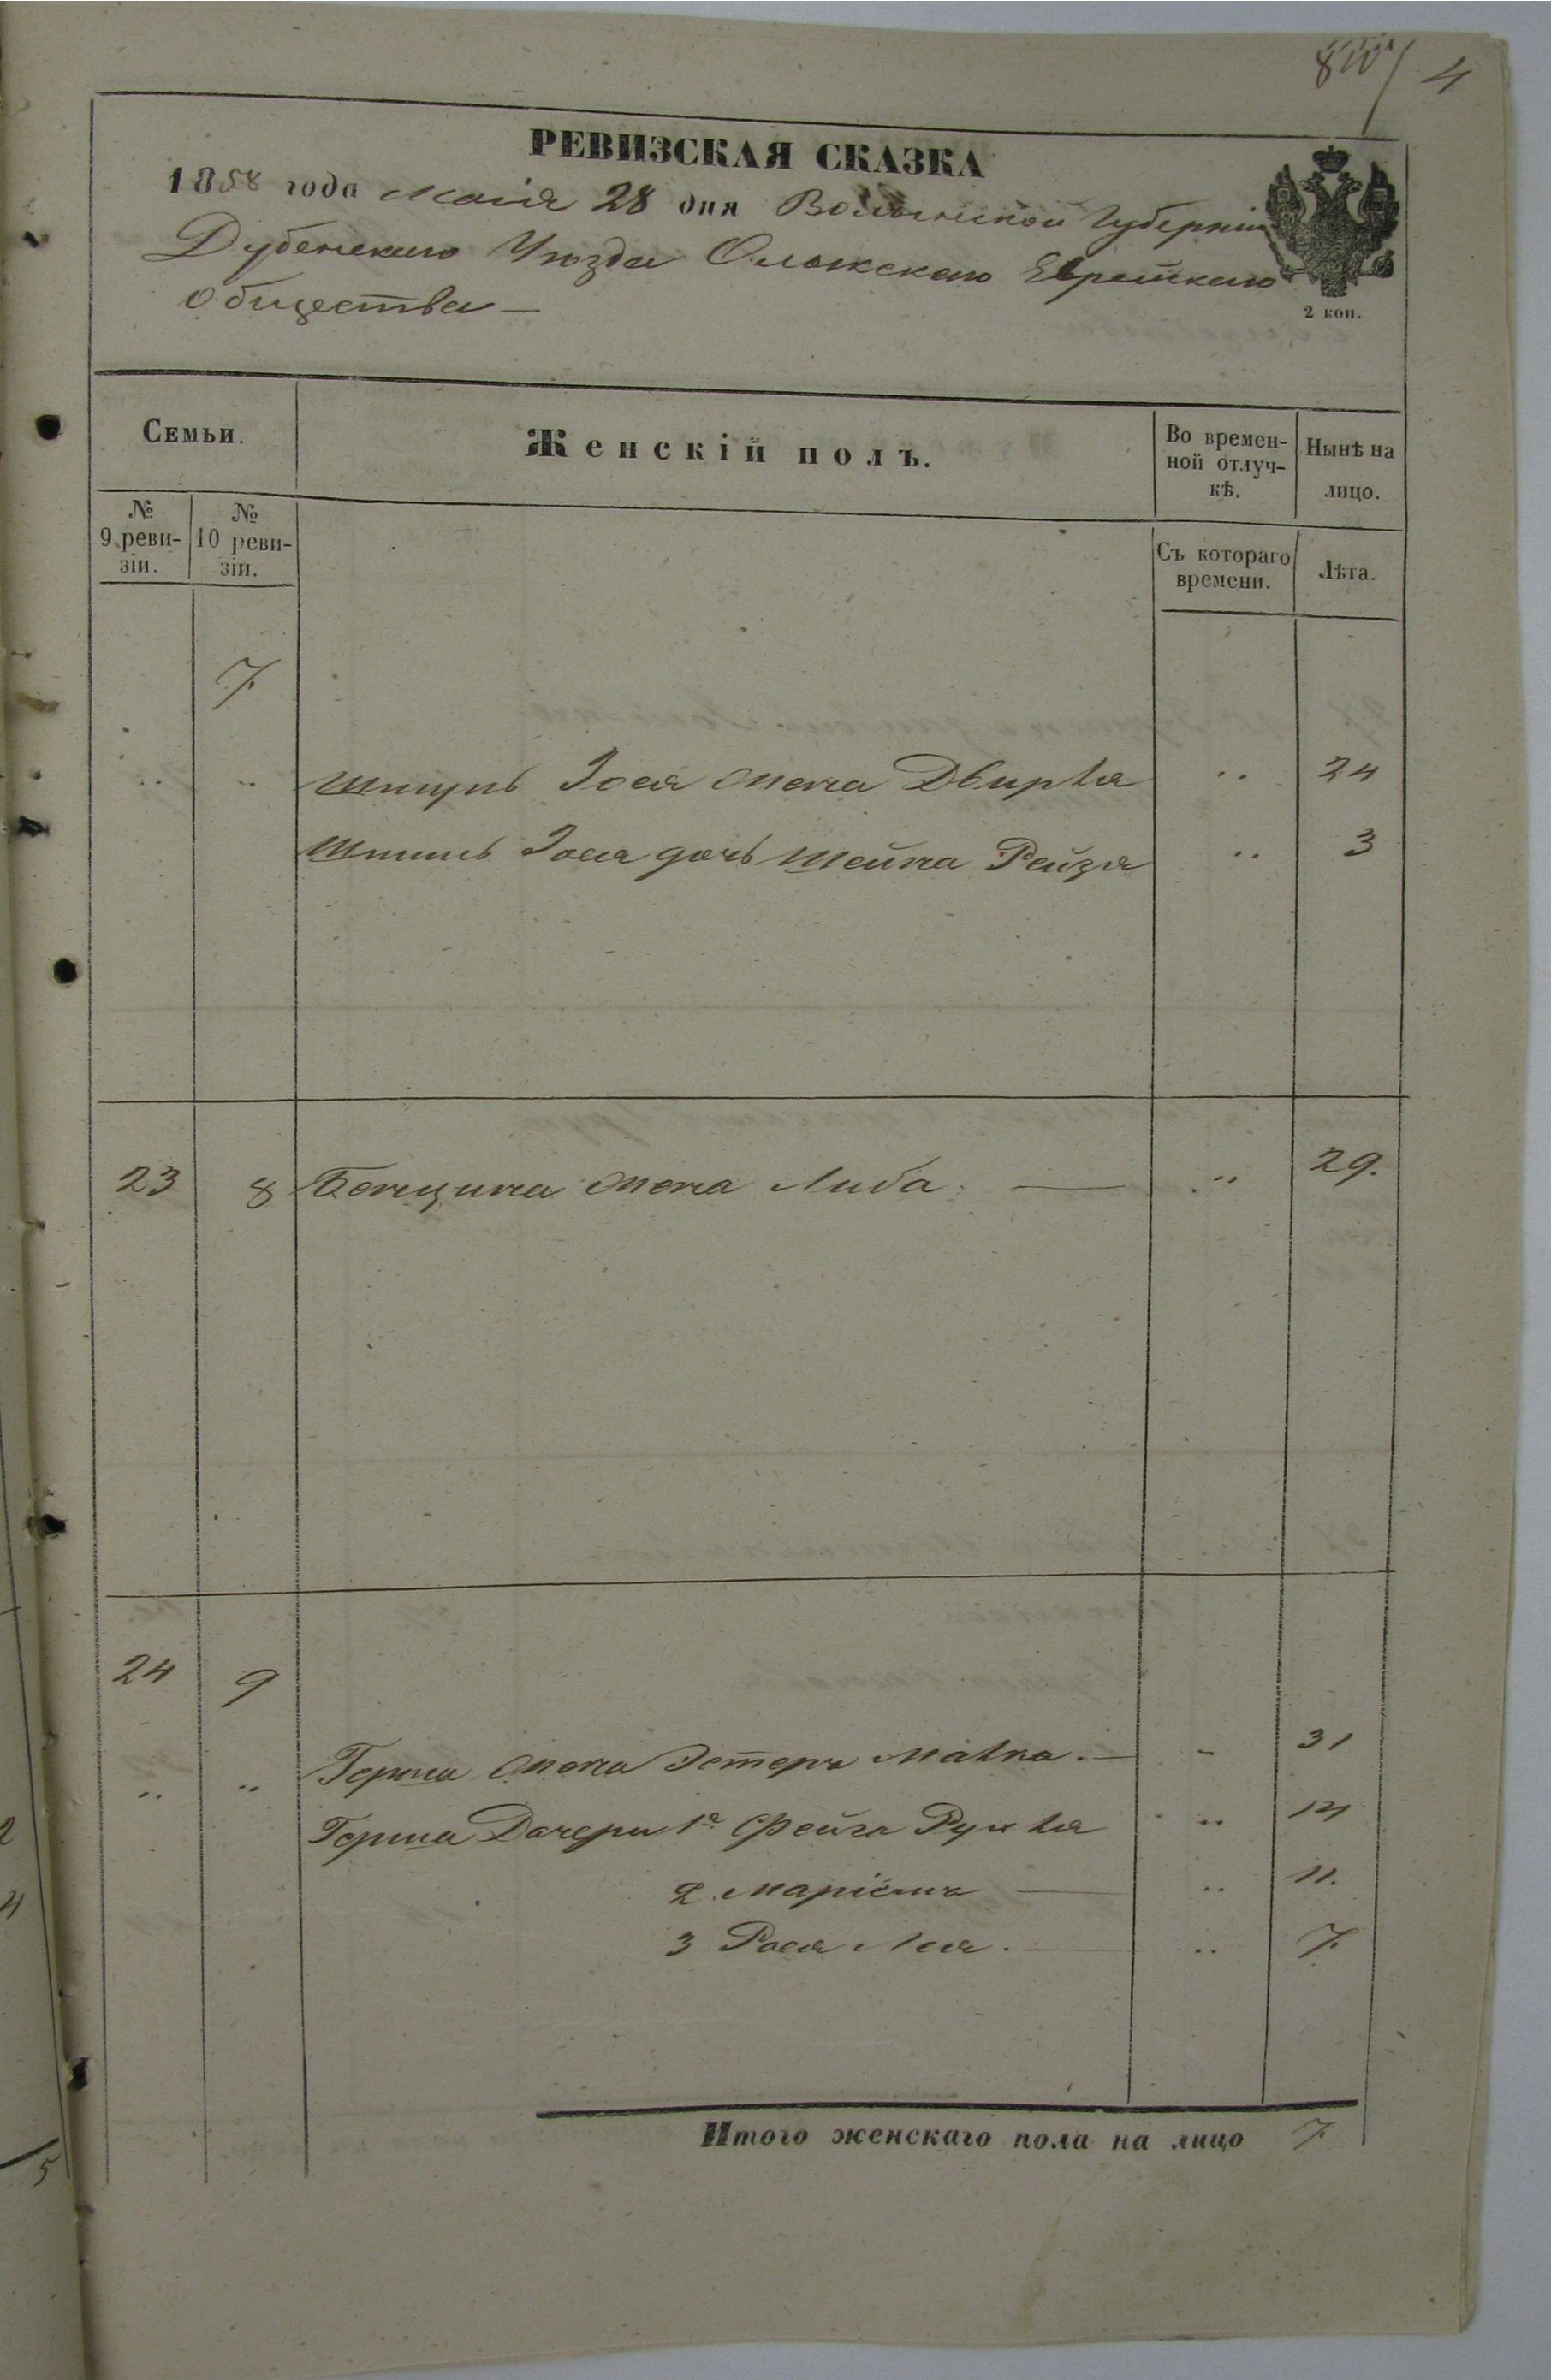 4
РЕВИЗСКАЯ СКАЗКА
1858 года Маія 28 дня Волынской Губерніи
Дубенскаго Уѣзда Олыкскаго Еврейскаго
Общества —
2 коп.
Семьи. Женскій полъ. Во времен-ной отлуч-кѣ. Нынѣ на лицо.
№ 9 реви-зіи. № 10 реви-зіи. Съ котораго времени. Лѣта.
7.
" " Іося жена Двирья " 24
Іося дочь Шейна Рейзя " 3
23 8 Бенцина жена Либа. — " 29.
24 9
" " Герша жена Эстеръ Малка. — " 31
Герша Дочери 1я Фейга Рухля " 14
2. Маріемъ — " 11.
3 Рося Лея. — " 7.
Итого женскаго пола на лицо 7.
2
4
5